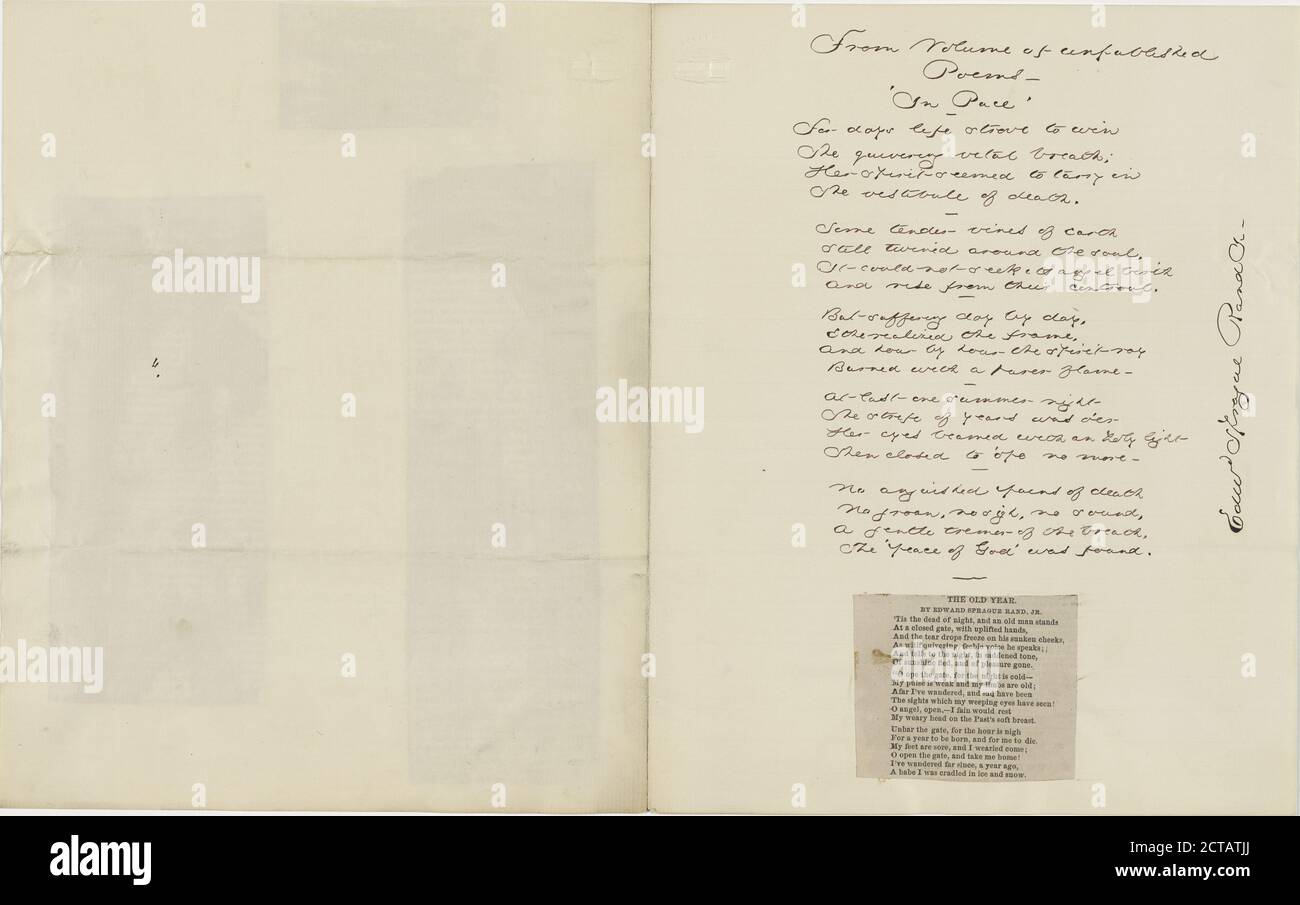 4.
From Volume of unpublished
Poems—
'In Pace'
For days life strove to win
The quivering vital breath;
Her spirit seemed to tarry in
The vestibule of death.
Some tender vines of earth
Still twined around the soul,
It could not seek its angel birth
And rise from their controul.
But suffering day by day,
Etherealized the frame,
And hour by hour the spirit ray
Burned with a purer flame—
At last one summer night
The strife of years was o'er
Her eyes beamed with an holy light
Then closed to 'ope no more—
No anguished pains of death
No groan, no sigh, no sound,
A gentle tremor of the breath,
The 'peace of God' was found.
Edwd Sprague Rand Jr—
THE OLD YEAR.
BY EDWARD SPRAGUE RAND, JR.
'Tis the dead of night, and an old man stands
At a closed gate, with uplifted hands,
And the tear drops freeze on his sunken cheeks,
As with quivering, feeble voice he speaks;
And tells to the night, in saddened tone,
Of sunshine fled, and of pleasure gone.
O ope the gate, for the night is cold—
My pulse is weak and my limbs are old;
Afar I've wandered, and sad have been
The sights which my weeping eyes have seen!
O angel, open,—I fain would rest
My weary head on the Past's soft breast.
Unbar the gate, for the hour is nigh
For a year to be born, and for me to die.
My feet are sore, and I wearied come;
O open the gate, and take me home!
I've wandered far since, a year ago,
A babe I was cradled in ice and snow.
alamy
alamy
alamy
alamy
alamy
alamy
Image ID: 2CTATJJ
www.alamy.com